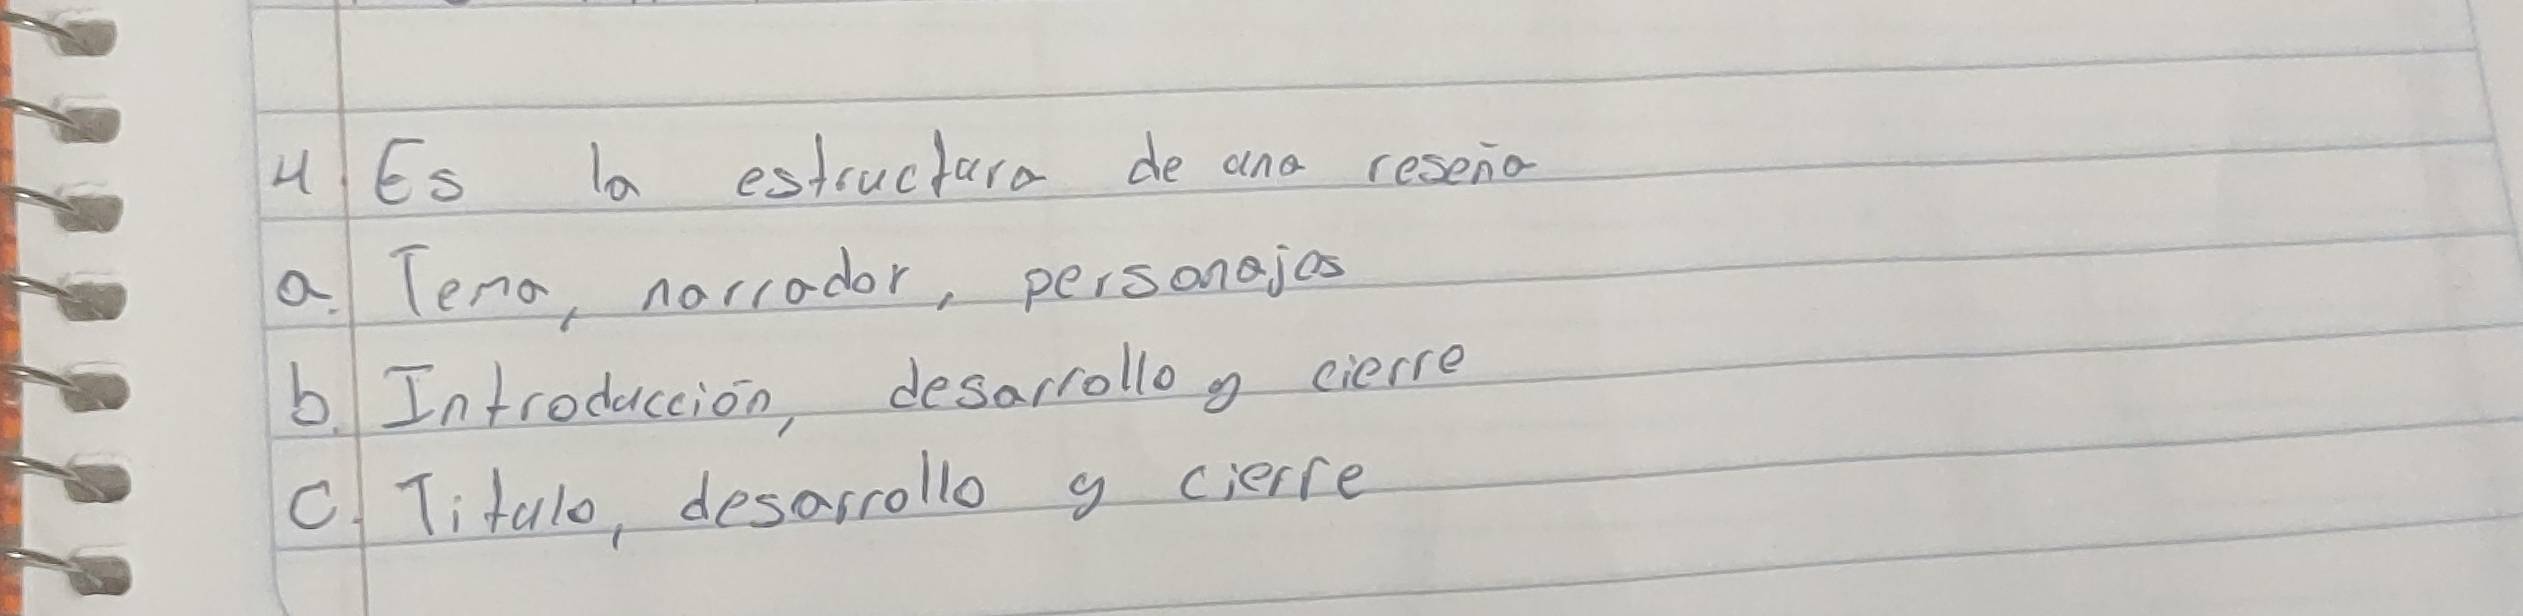 4 Es la estructura de una reseña
a. Tema, narrador, personajes
b. Introducción, desarrollo y cierre
C. Titulo, desarrollo y cierre